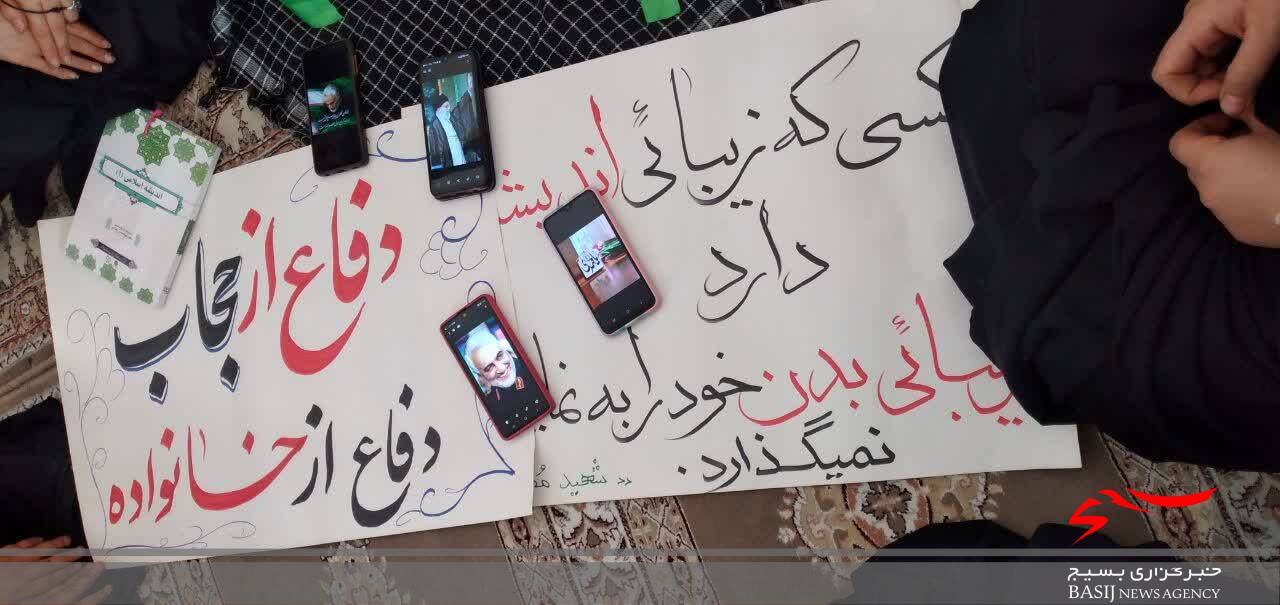 کسی که زیبائی اندیشه
دارد
زیبائی بدن خود را به نما
نمیگذارد.
شهید
دفاع از حجاب
دفاع از خانواده
اندیشه اسلامی (۱)
خبرگزاری بسیج
BASIJ NEWS AGENCY